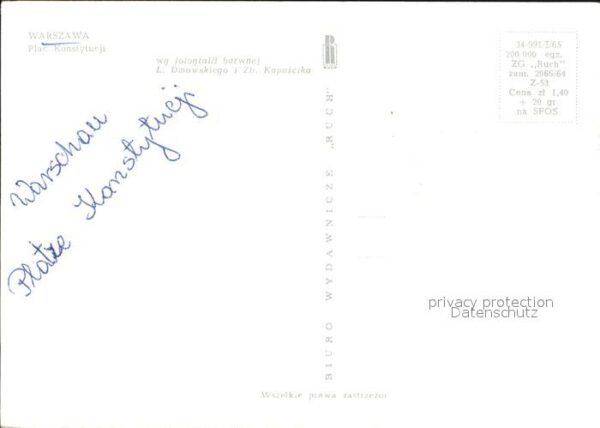 WARSZAWA
Plac Konstytucji
wg fotografii barwnej
Ł. Dmowskiego i Zb. Kapuścika
34-991/I/65
200 000 egz.
ZG „Ruch"
zam. 2066/64
Z-53
Cena zł 1,40
+ 20 gr
na SFOS
Warschau
Platze Konstytucji
BIURO WYDAWNICZE „RUCH"
privacy protection
Datenschutz
Wszelkie prawa zastrzeżon